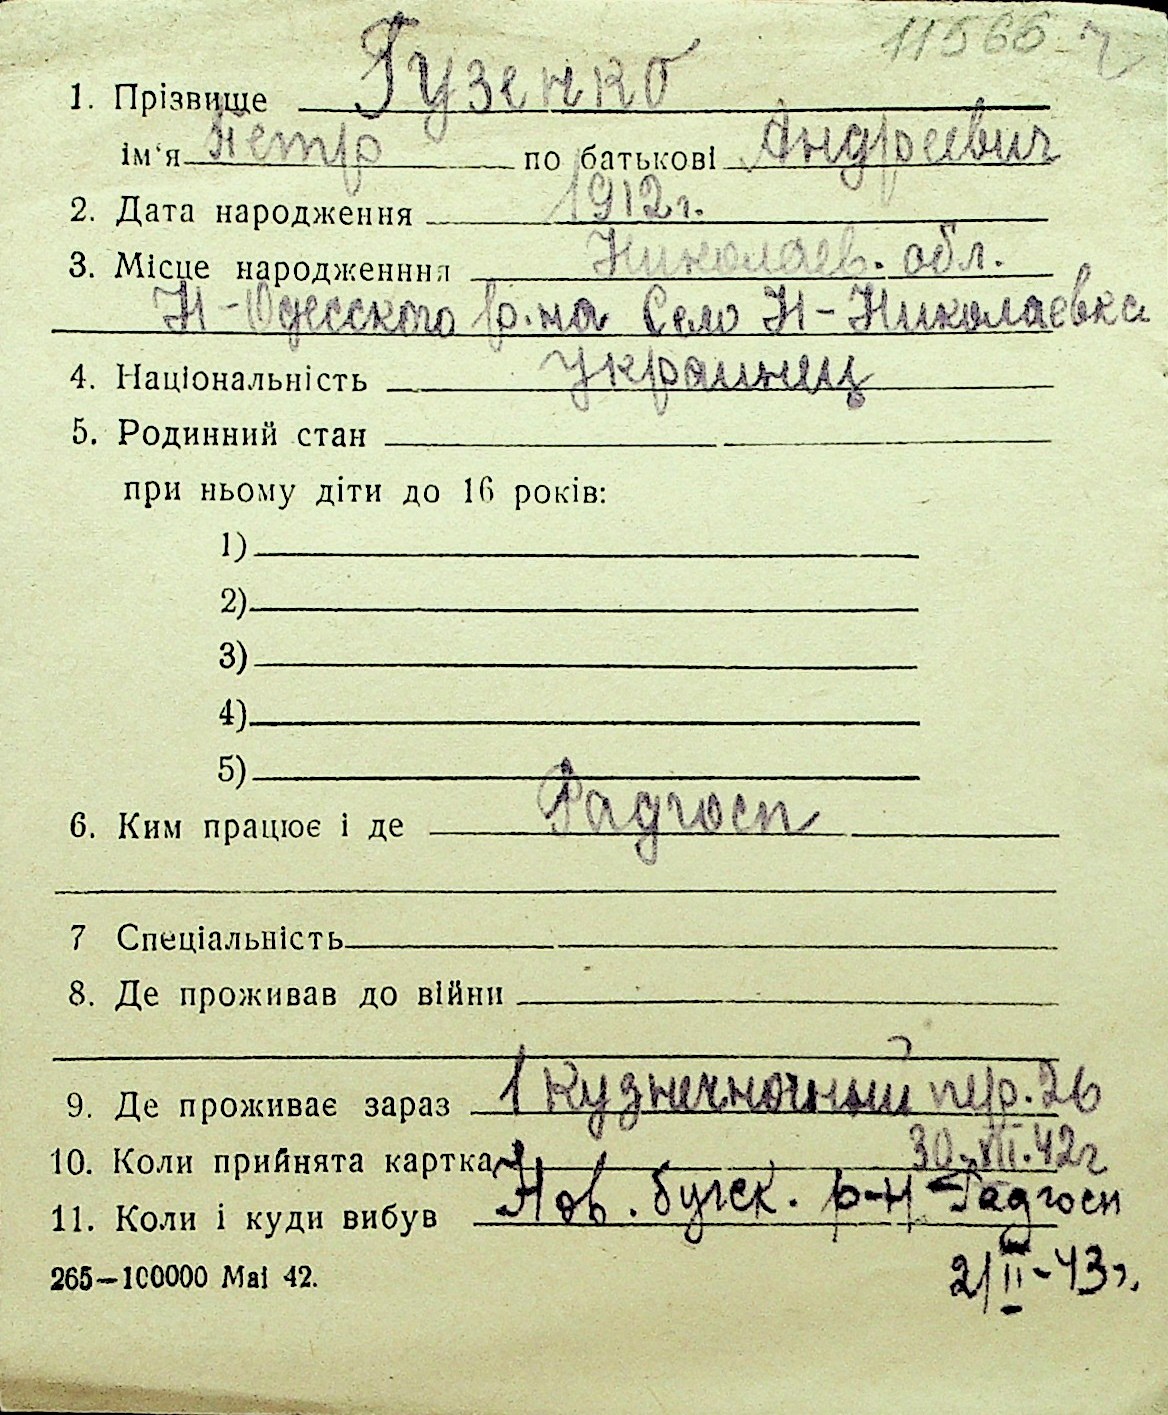 11566
1. Прізвище Гузенко
ім'я Петр по батькові Андреевич
2. Дата народження 1912 г.
3. Місце народженння Николаев. обл.
Н-Одесского р.на Село Н-Николаевка
4. Національність Украинец
5. Родинний стан
при ньому діти до 16 років:
1)
2)
3)
4)
5)
6. Ким працює і де Радгосп
7 Спеціальність
8. Де проживав до війни
9. Де проживає зараз 1 Кузнечночный пер. 26
10. Коли прийнята картка 30-XII-42г
11. Коли і куди вибув Нов. бугск. р-н Радгосп
265—100000 Маі 42. 2/II-43г.